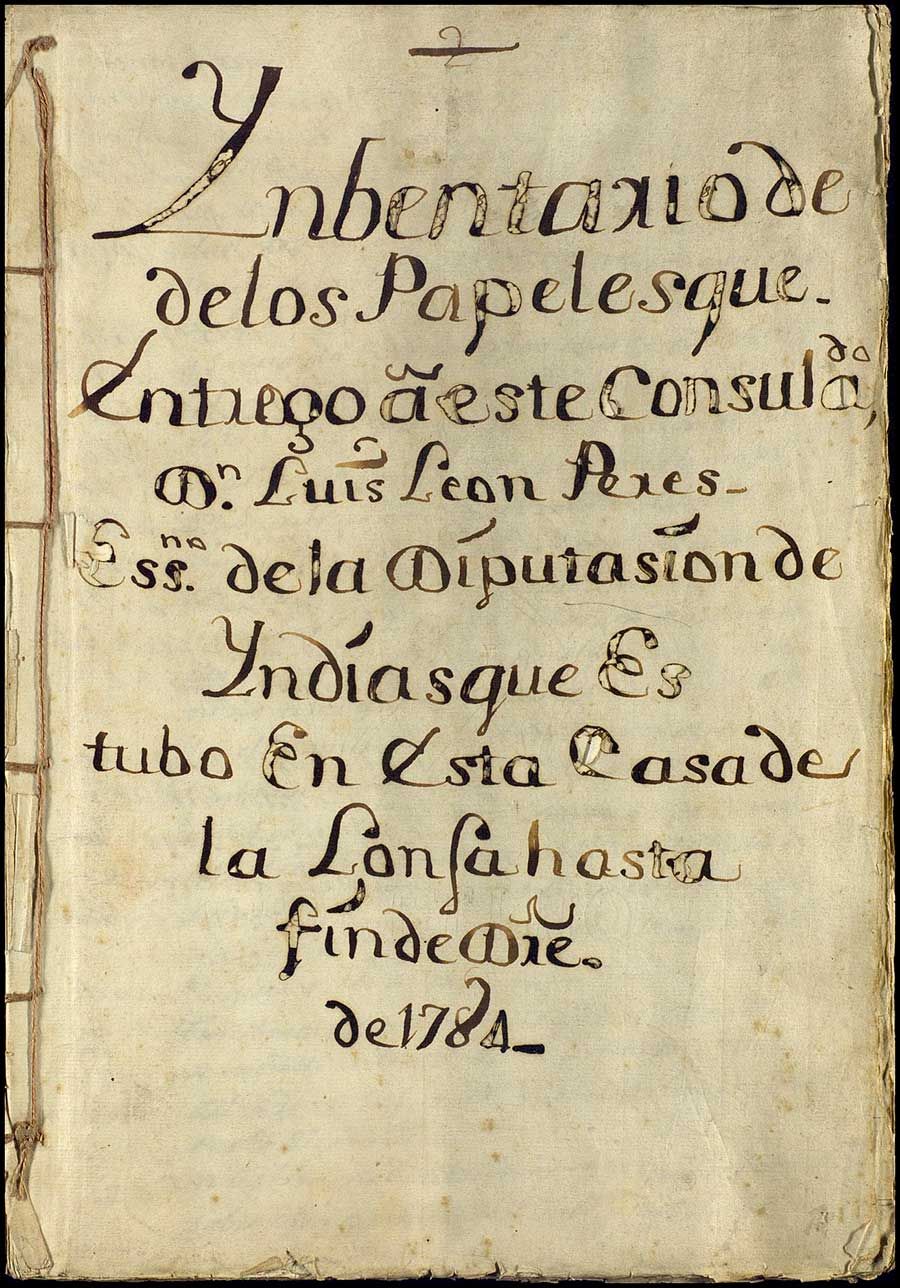 2
Ynbentario de
de los Papeles que.
Entrego â este Consulado,
Dn. Luis Leon Peres-
Essno. de la Diputasión de
Yndias que Es
tubo En Esta Casa de
la Lonja hasta
fin de Dre.
de 1784-